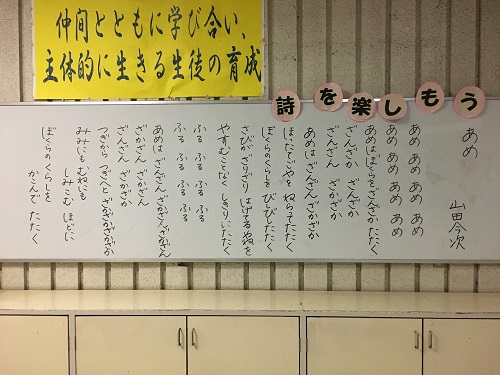 仲間とともに学び合い、
主体的に生きる生徒の育成
詩を楽しもう
あめ
山田今次
あめ あめ あめ あめ
あめ あめ あめ あめ
あめはぼくらをざんざかたたく
ざんざか ざんざか
ざんざん ざかざか
あめは ざんざん ざかざか ざかざか
ほったてごやを ねらってたたく
ぼくらのくらしを びしびしたたく
さびが ざりざり はげてるやねを
やすむことなく しきりにたたく
ふる ふる ふる ふる
ふる ふる ふる ふる
あめは ざんざん ざかざん ざかざん
ざかざん ざかざん
ざんざん ざかざか
つぎから つぎへと ざかざかざかざか
みみにも むねにも
しみこむ ほどに
ぼくらのくらしを
かこんで たたく